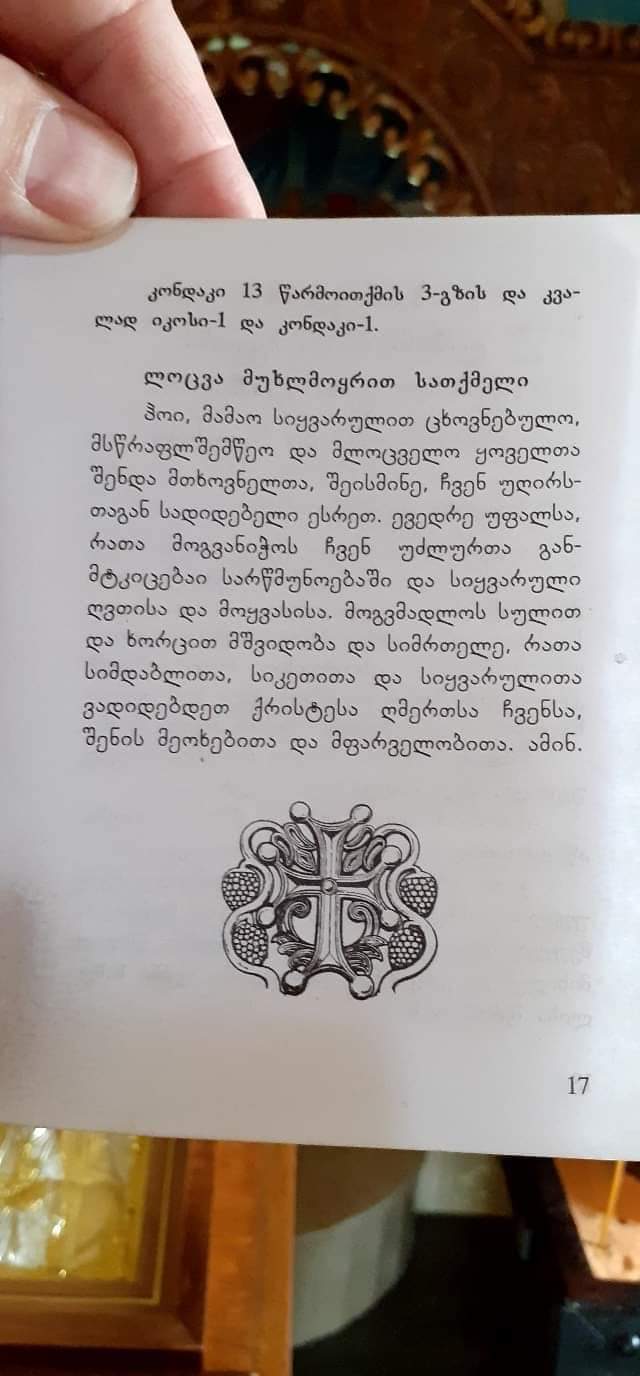 კონდაკი 13 წარმოითქმის 3-გზის და კვა-
ლად იკოსი-1 და კონდაკი-1.
ლოცვა მუხლმოყრით სათქმელი
ჰოი, მამაო სიყვარულით ცხოვნებულო,
მსწრაფლშემწეო და მლოცველო ყოველთა
შენდა მთხოვნელთა, შეისმინე, ჩვენ უღირს-
თაგან სადიდებელი ესრეთ. ევედრე უფალსა,
რათა მოგვანიჭოს ჩვენ უძლურთა გან-
მტკიცებაი სარწმუნოებაში და სიყვარული
ღვთისა და მოყვასისა. მოგვმადლოს სულით
და ხორცით მშვიდობა და სიმრთელე, რათა
სიმდაბლითა, სიკეთითა და სიყვარულითა
ვადიდებდეთ ქრისტესა ღმერთსა ჩვენსა,
შენის მეოხებითა და მფარველობითა. ამინ.
17